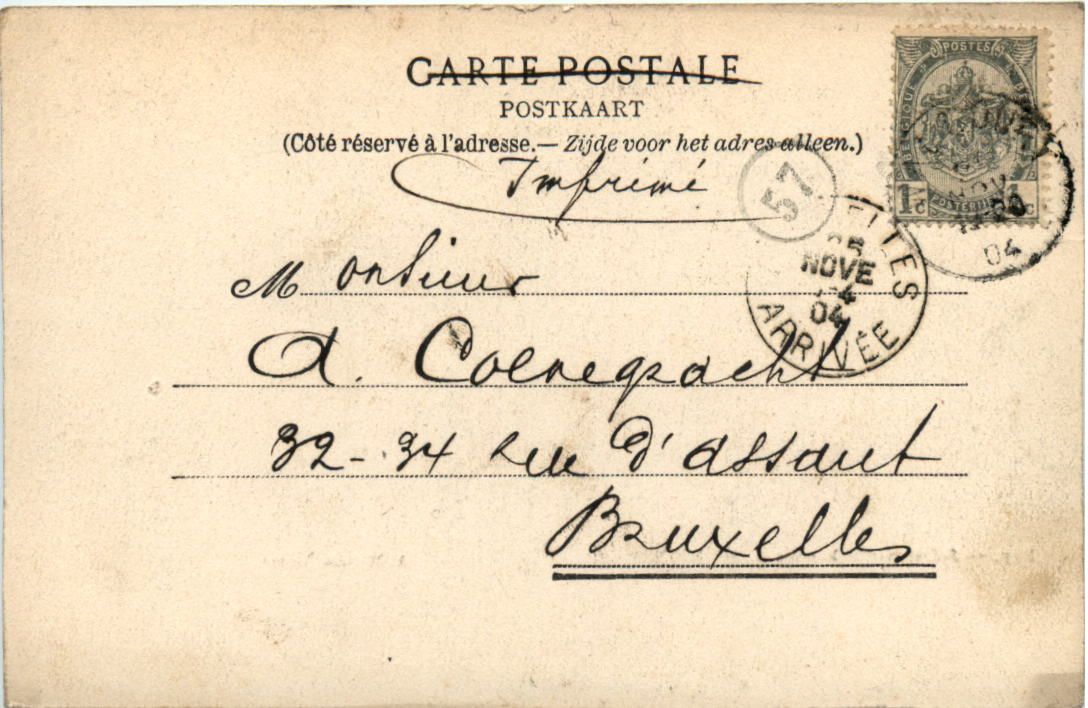 CARTE POSTALE
POSTKAART
(Côté réservé à l'adresse.— Zijde voor het adres alleen.)
Imprimé
Monsieur
A. Coenegracht
32-34 rue d'assaut
Bruxelles
POSTES
BELGIQUE
1c
1c
POSTERIJEN
NOV
04
57
ELLES
25
NOVE
04
ARRIVÉE